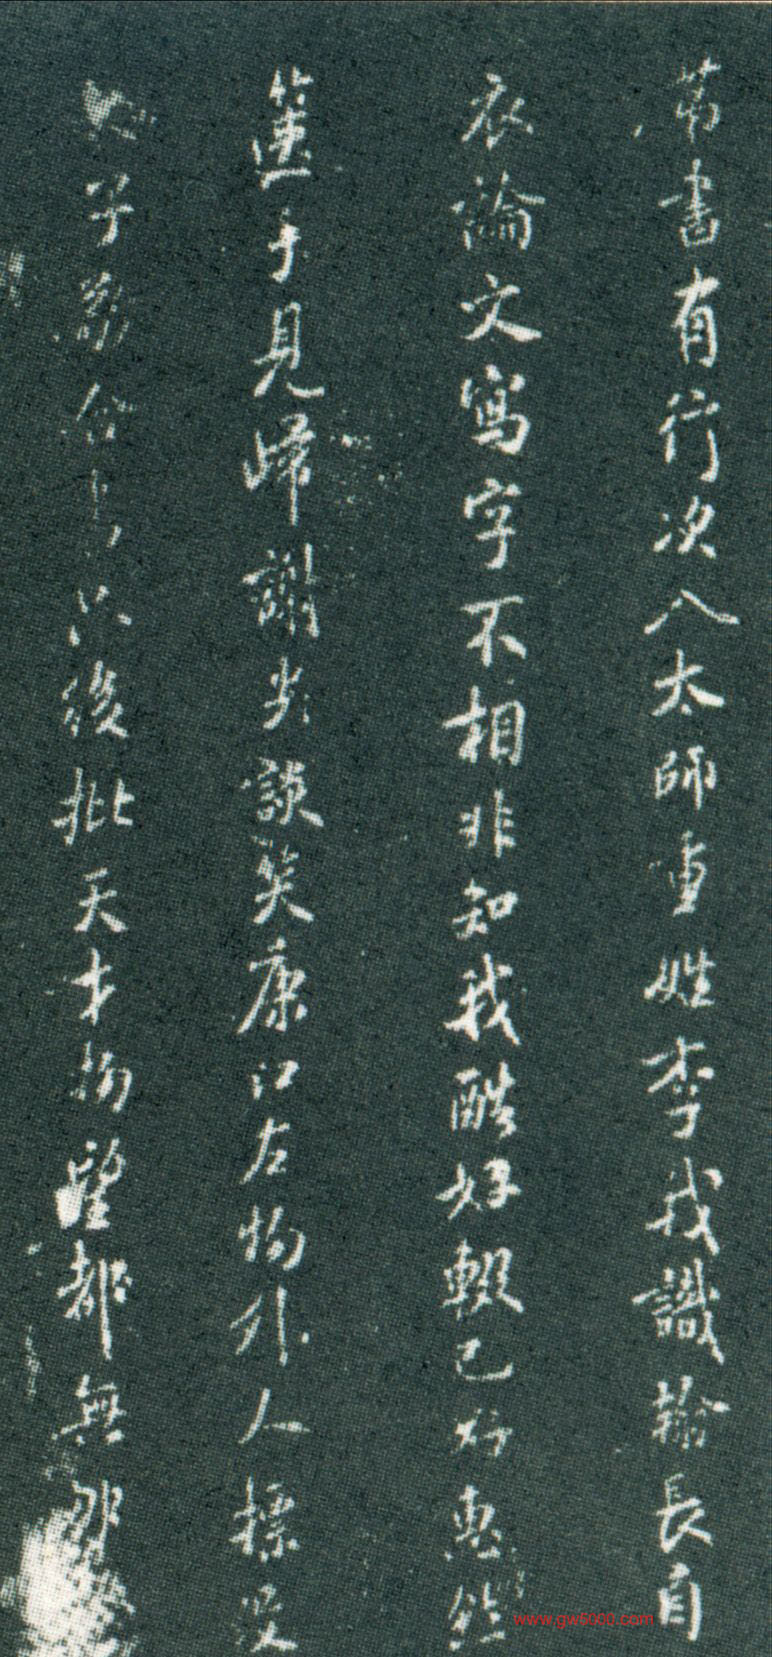 芾書有行次入太師重姓李我識翰長自
衣論文寫字不相非知我酷好輟己好惠然
篋于見歸謝光談笑康江左物外人標
子敬合後批天才物望都無
www.gw6000.com